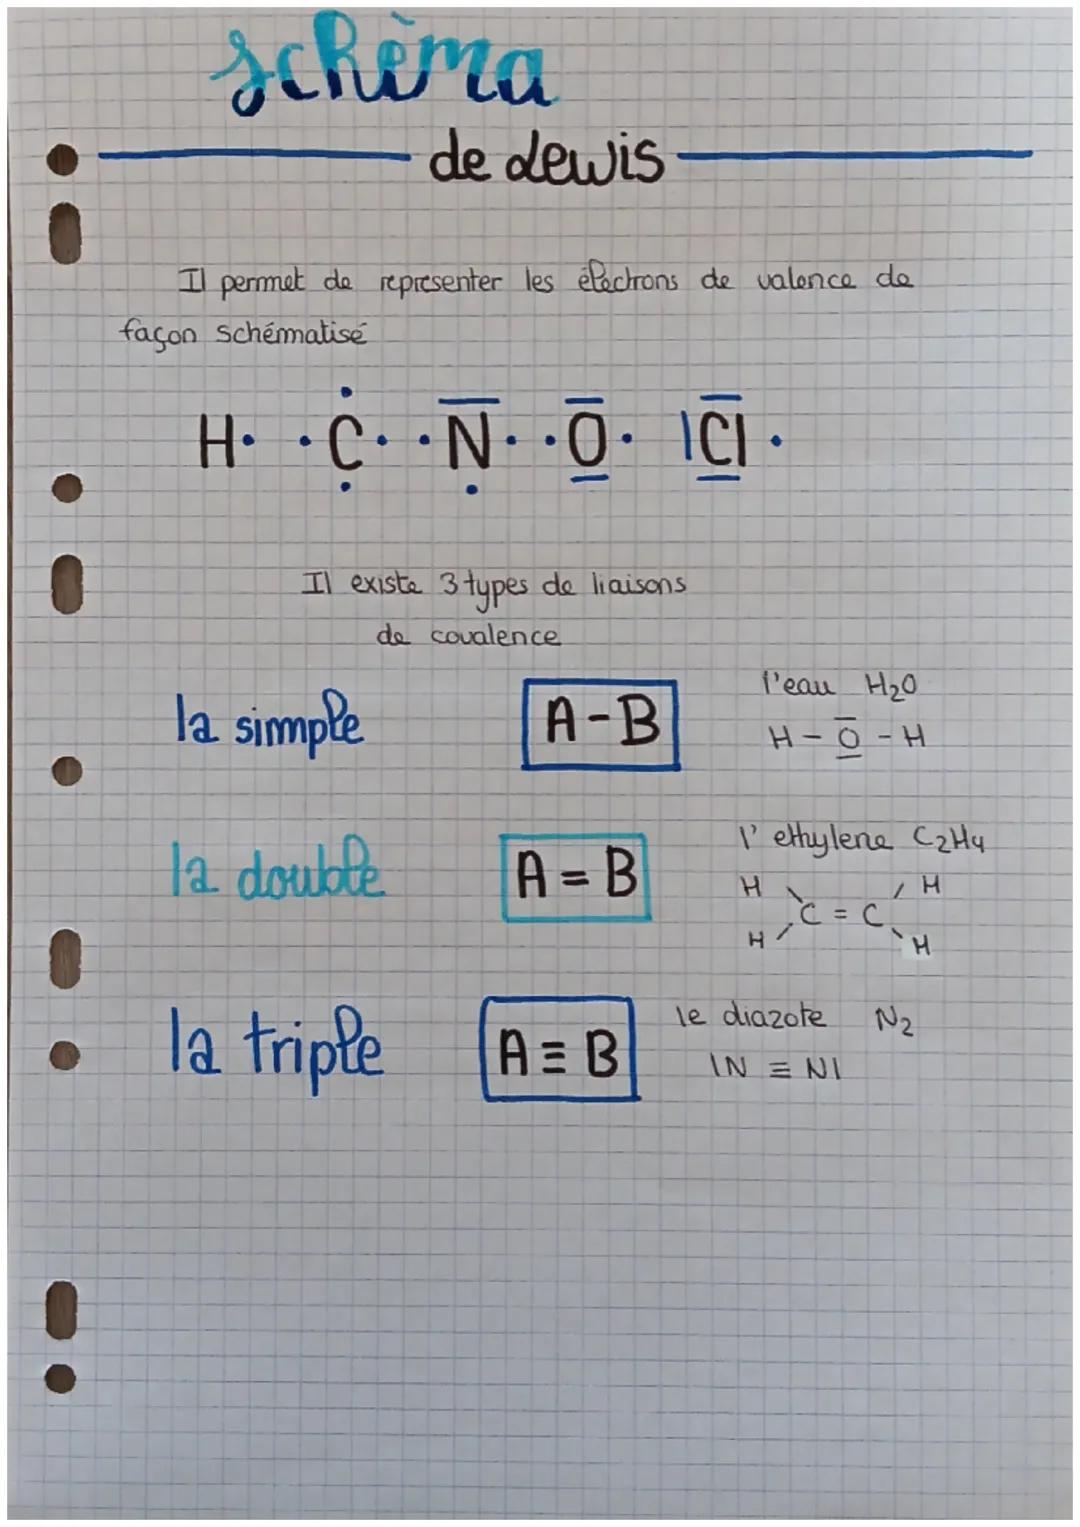 schèma
de Lewis
Il permet de representer les électrons de valence de
façon schématisé
H· ·C· ·N· ·O· |Cl ·
Il existe 3 types de liaisons
de covalence
la simple A-B l'eau H₂O
H - O - H
la double A = B l'ethylene C₂H₄
H H
C = C
H H
la triple A ≡ B le diazote N₂
|N ≡ N|